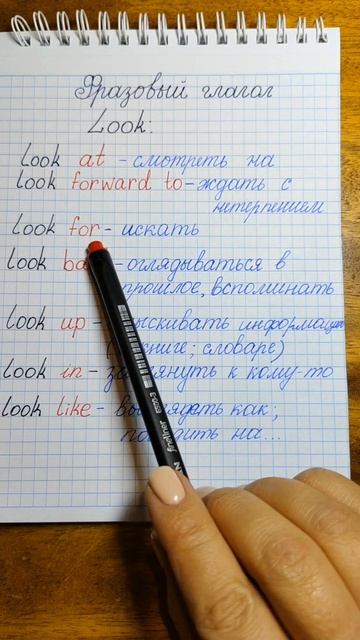 Фразовый глагол
Look:
look at - смотреть на
look forward to - ждать с
нетерпением
look for - искать
look - оглядываться в
прошлое, вспоминать
look up - информацию
книге; словаре)
look in - к кому-то
look like - как;
на...
fineliner